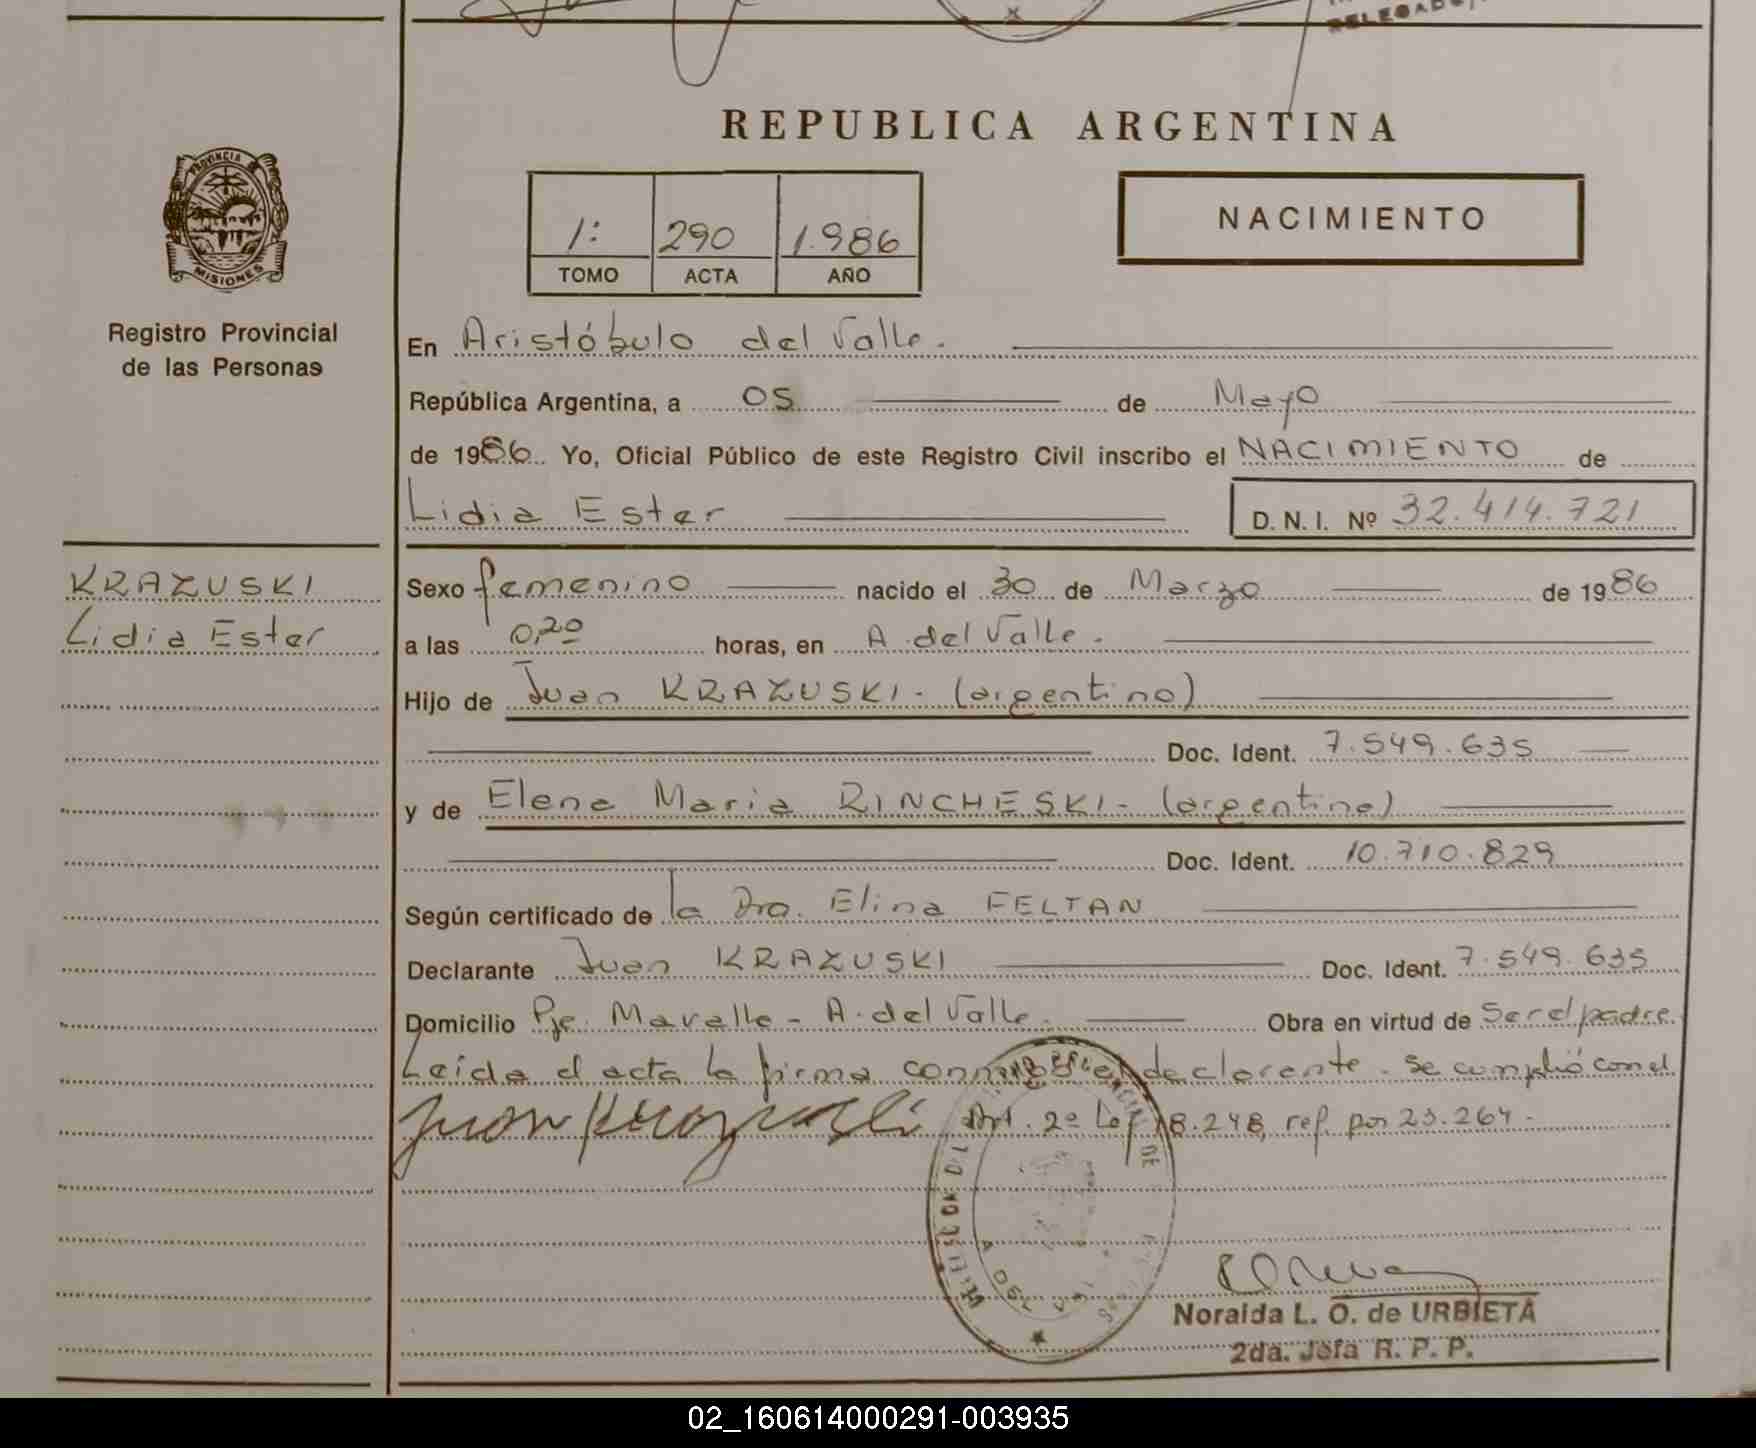 DELEGADO
REPUBLICA ARGENTINA
PROVINCIA
MISIONES
Registro Provincial
de las Personas
1: 290 1.986
TOMO ACTA AÑO
NACIMIENTO
En Aristóbulo del Valle.
República Argentina, a 05 de Mayo
de 1986 Yo, Oficial Público de este Registro Civil inscribo el NACIMIENTO de
Lidia Ester D.N.I. Nº 32.414.721
KRAZUSKI
Lidia Ester
Sexo femenino nacido el 30 de Marzo de 1986
a las 0,20 horas, en A. del Valle.
Hijo de Juan KRAZUSKI - (argentino)
Doc. Ident. 7.549.635
y de Elena Maria RINCHESKI - (argentina)
Doc. Ident. 10.710.829
Según certificado de la Dra. Elina FELTAN
Declarante Juan KRAZUSKI Doc. Ident. 7.549.635
Domicilio Pje. Mavalle - A. del Valle. Obra en virtud de Ser el padre.
Leida el acta la firma conmigo el declarante. Se cumplió con el
Art. 2º Ley 18.248, ref. por 23.264 -
Noraida L. O. de URBIETA
2da. Jefa R. P. P.
02_160614000291-003935